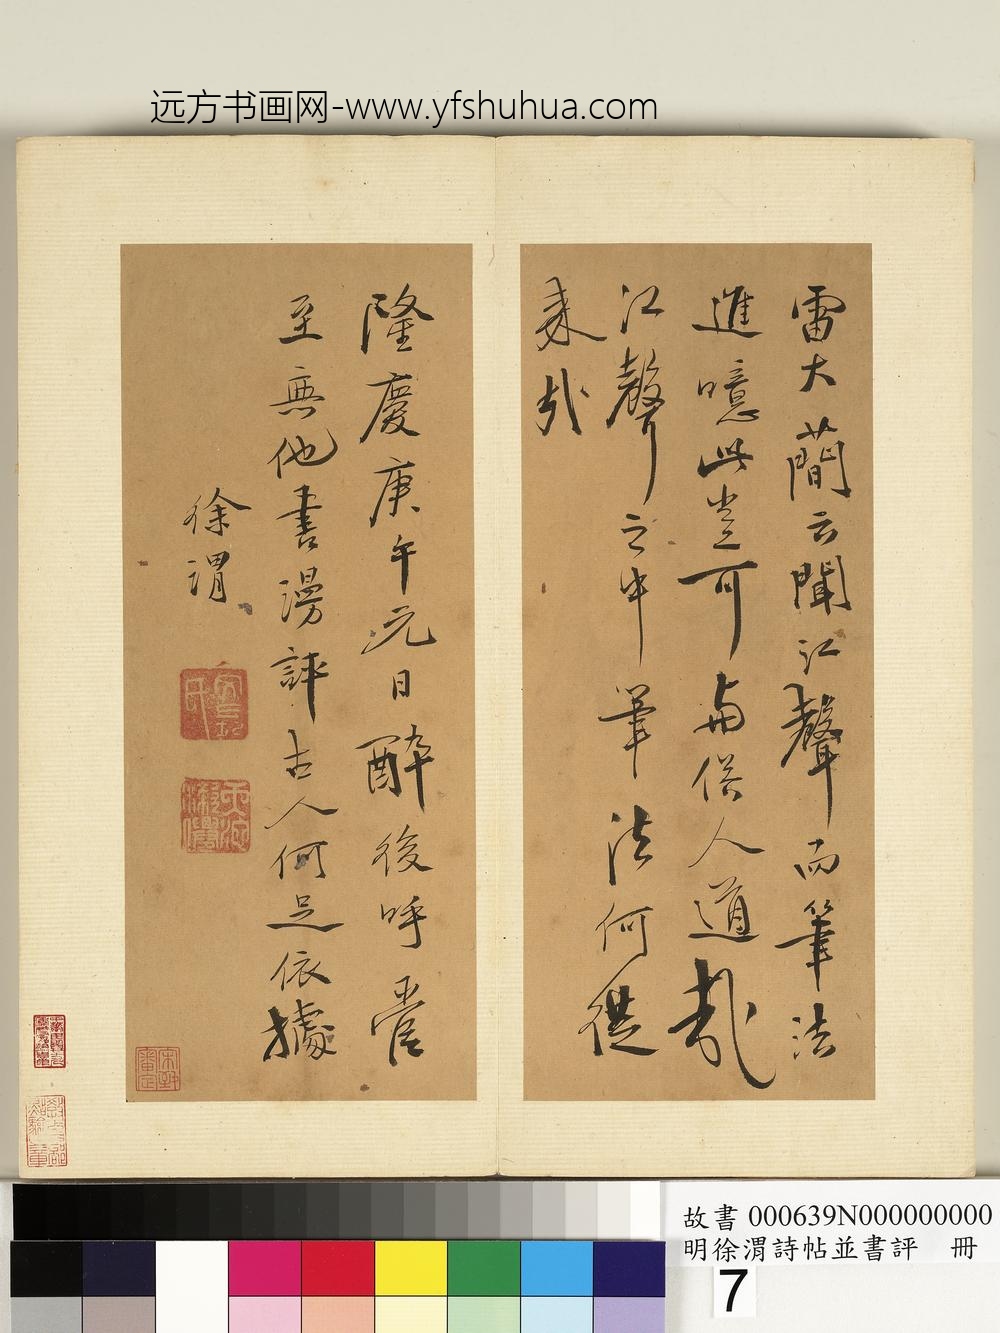 远方书画网-www.yfshuhua.com
雷大蕳云聞江聲而筆法
進噫此豈可与俗人道哉
江聲之中筆法何從
来哉
隆慶庚午元日醉後呼管
至無他書漫評古人何足依據
徐渭
故書 000639N000000000
明徐渭詩帖並書評 冊
7